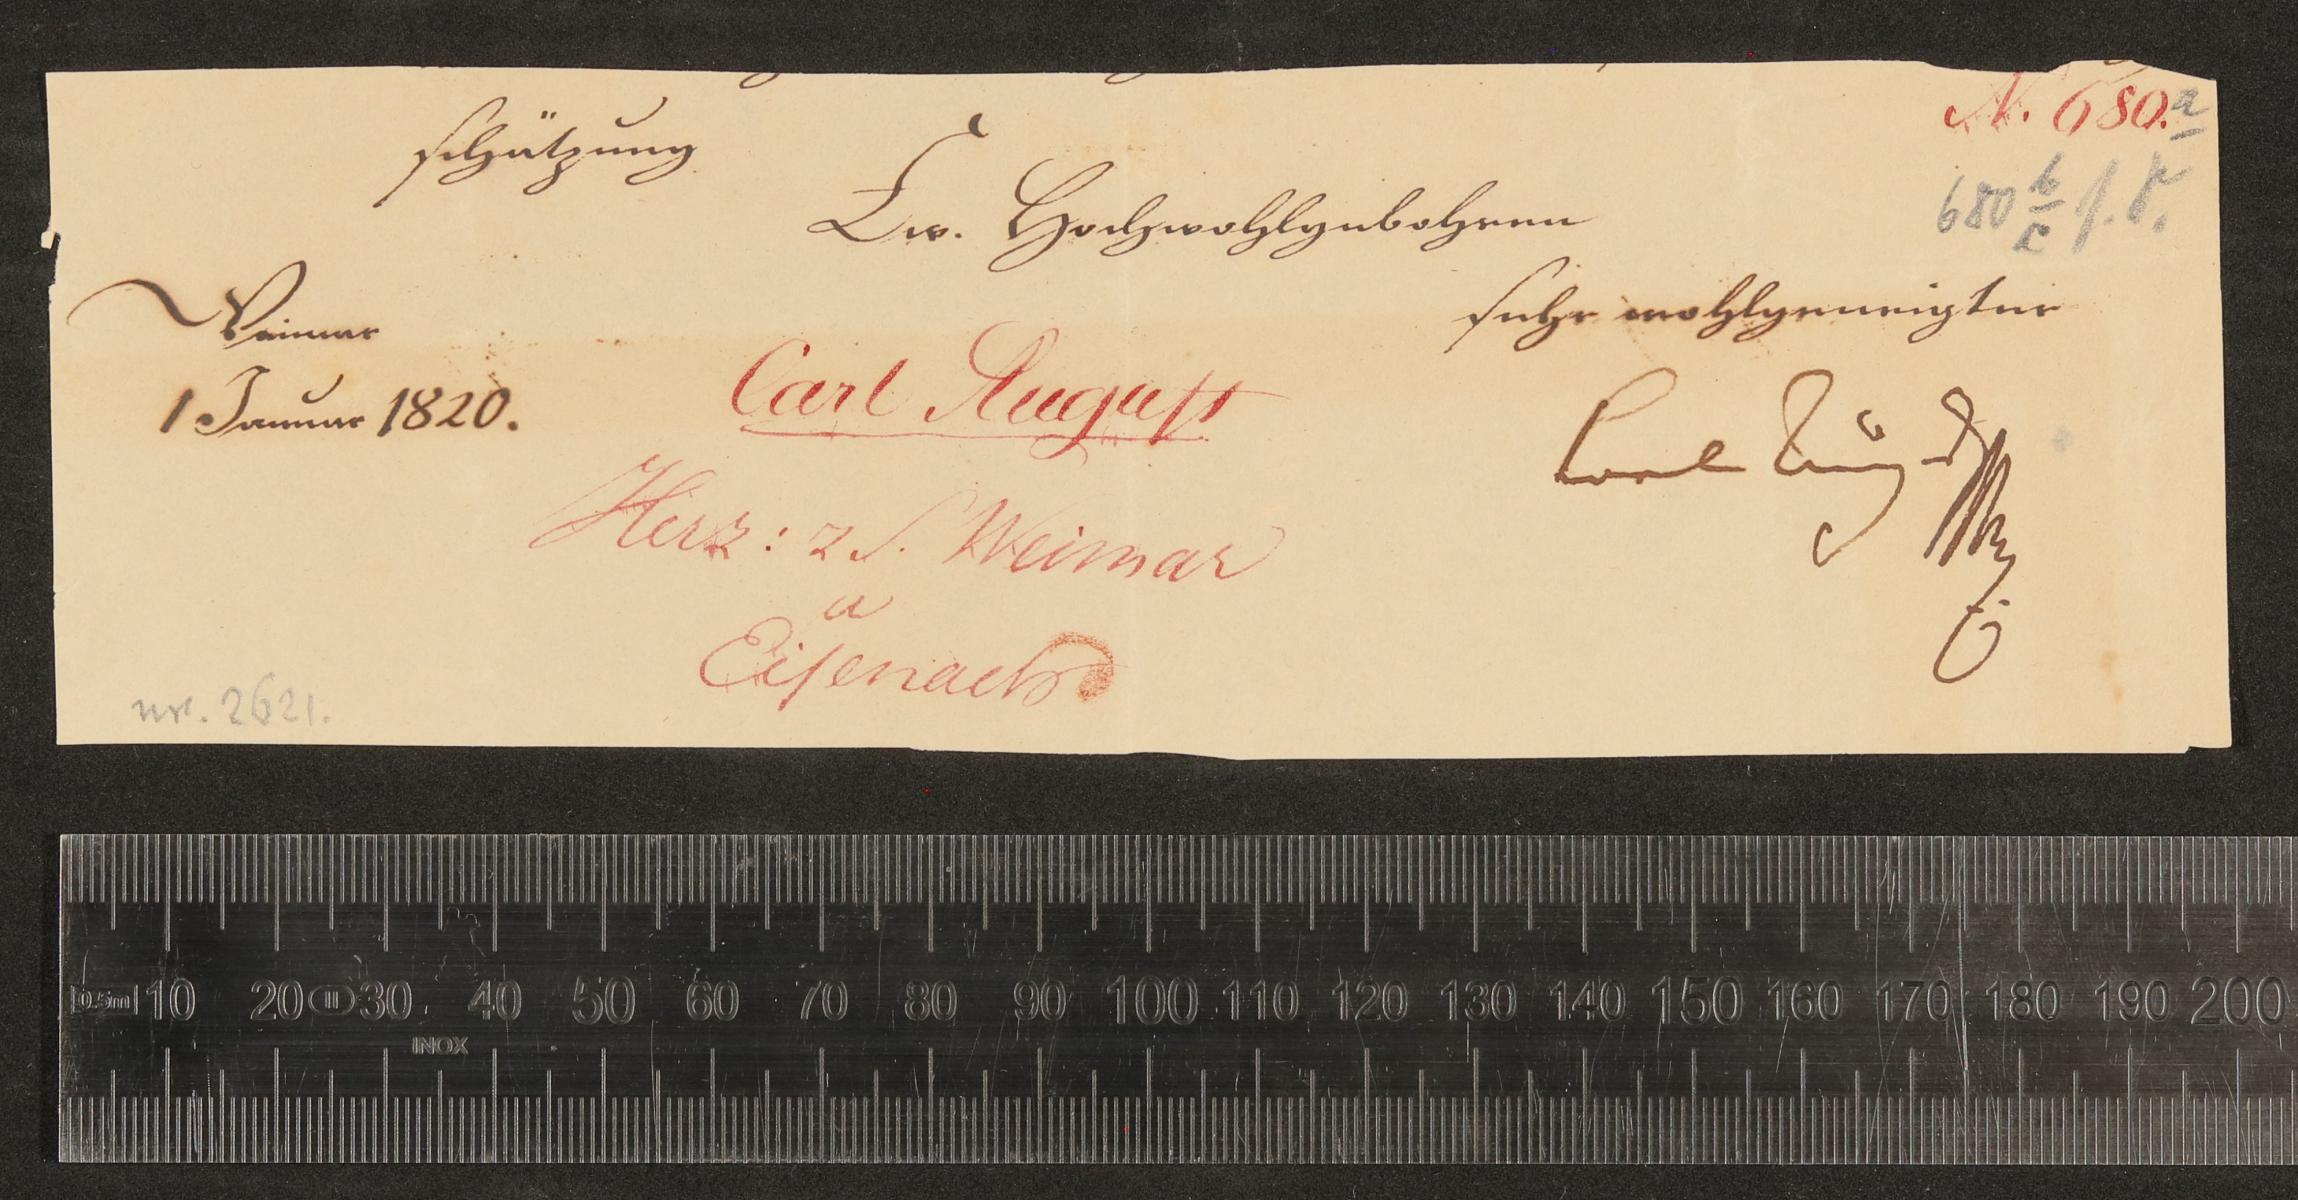 N. 680.a
schätzung
680 b/c f. F.
Ew. Hochwohlgebohren
sehr wohlgeneigter
Weimar
1 Januar 1820.
Carl August
Carl August
Herz: z S. Weimar
u
Eisenach
nr. 2621.
0.5m 10 20 II 30 40 50 60 70 80 90 100 110 120 130 140 150 160 170 180 190 200
INOX